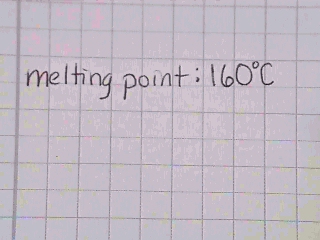 melting point: 160°C